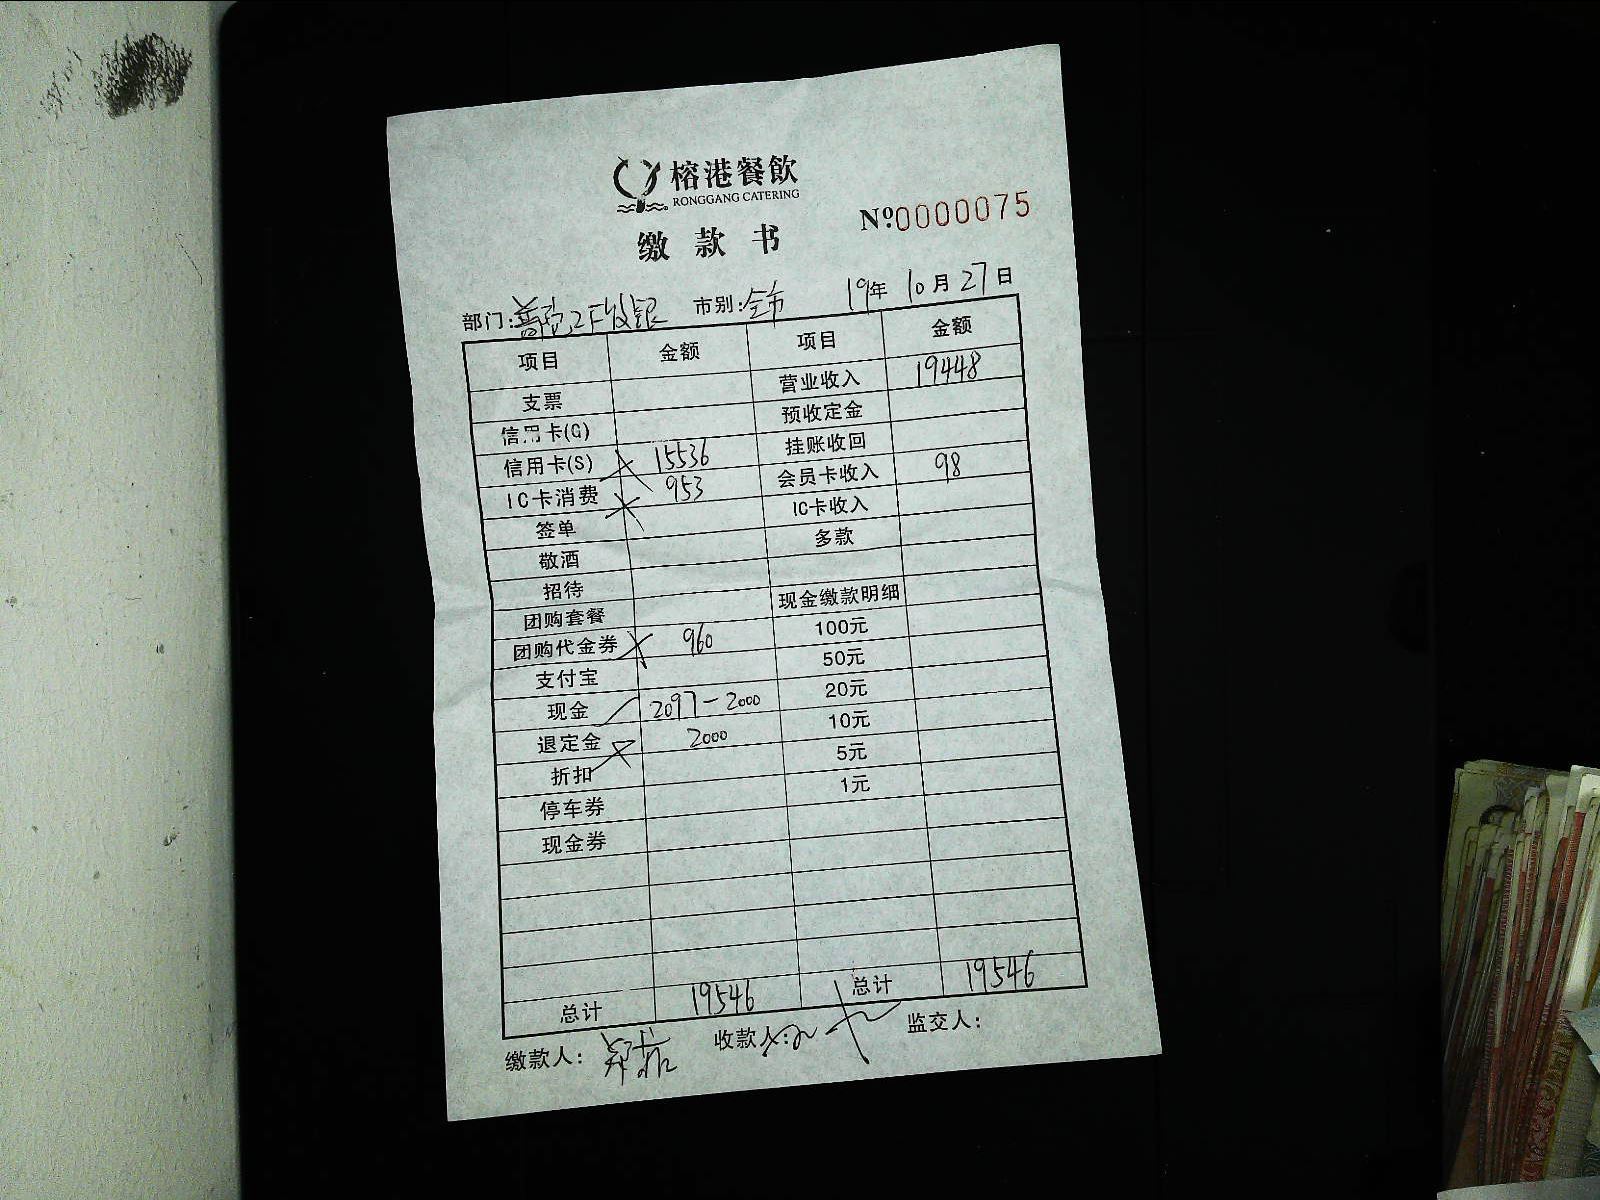 榕港餐飲
RONGGANG CATERING
缴款书
Nº0000075
部门: 2F收银 市别:全市 19年10月27日
项目 金额 项目 金额
支票 营业收入 19448
信用卡(G) 预收定金
信用卡(S) 15536 挂账收回
IC卡消费 953 会员卡收入 98
签单 IC卡收入
敬酒 多款
招待
团购套餐 现金缴款明细
团购代金券 960 100元
支付宝 50元
现金 2097-2000 20元
退定金 2000 10元
折扣 5元
停车券 1元
现金券
总计 19546 总计 19546
缴款人: 收款人: 监交人: